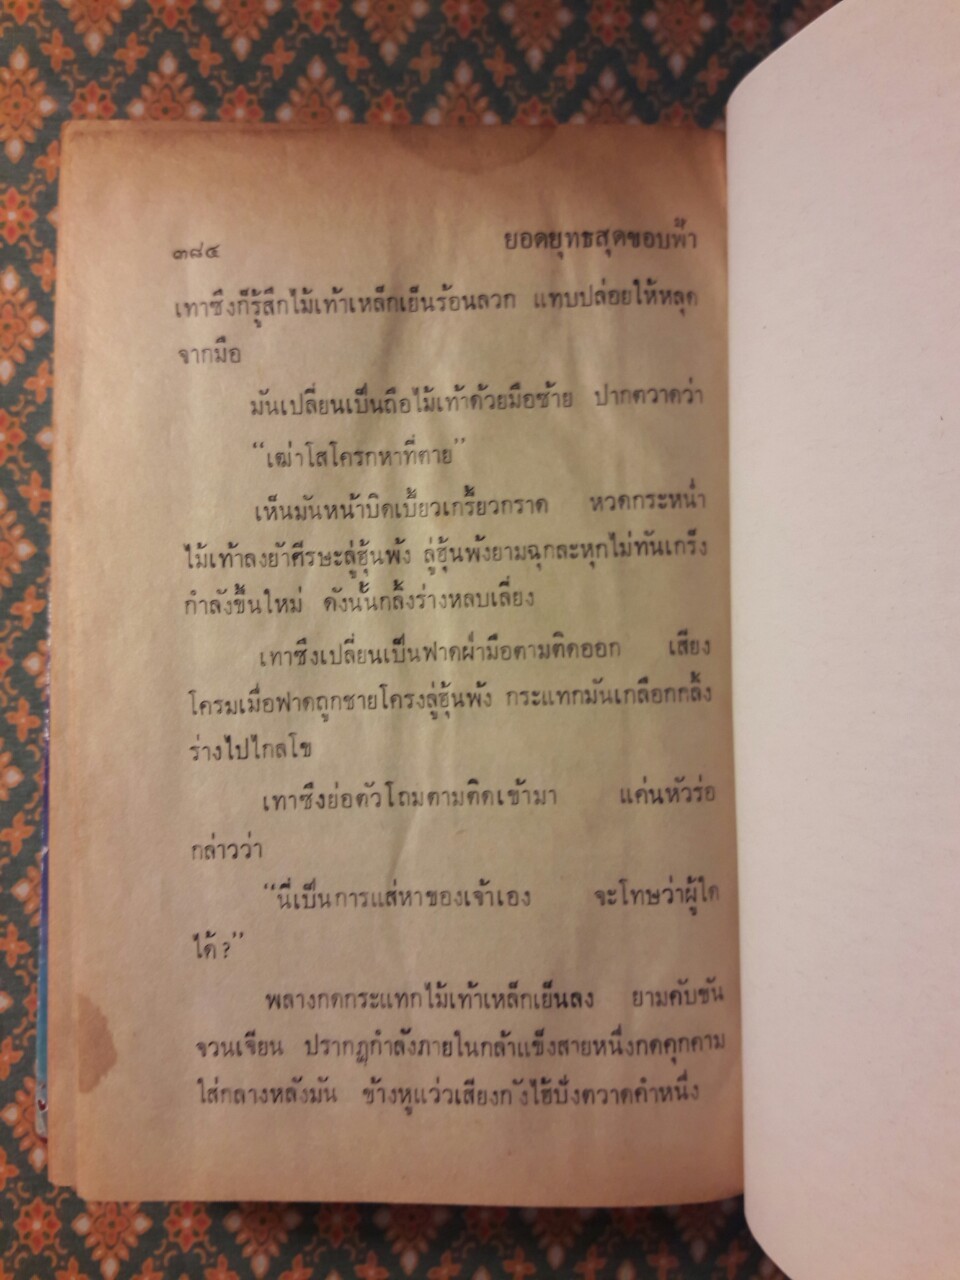 ๓๘๔ ยอดยุทธสุดขอบฟ้า
เทาซึงก็รู้สึกไม้เท้าเหล็กเย็นร้อนลวก แทบปล่อยให้หลุด
จากมือ
มันเปลี่ยนเป็นถือไม้เท้าด้วยมือซ้าย ปากตวาดว่า
“เฒ่าโสโครกหาที่ตาย”
เห็นมันหน้าบิดเบี้ยวเกรี้ยวกราด หวดกระหน่ำ
ไม้เท้าลงยังศีรษะลู่ฮุ้นพ้ง ลู่ฮุ้นพ้งยามฉุกละหุกไม่ทันเกร็ง
กำลังขึ้นใหม่ ดังนั้นกลิ้งร่างหลบเลี่ยง
เทาซึงเปลี่ยนเป็นฟาดฝ่ามือตามติดออก เสียง
โครมเมื่อฟาดถูกชายโครงลู่ฮุ้นพ้ง กระแทกมันเกลือกกลิ้ง
ร่างไปไกลโข
เทาซึงย่อตัวโถมตามติดเข้ามา แค่นหัวร่อ
กล่าวว่า
“นี่เป็นการแส่หาของเจ้าเอง จะโทษว่าผู้ใด
ได้?”
พลางกดกระแทกไม้เท้าเหล็กเย็นลง ยามคับขัน
จวนเจียน ปรากฏกำลังภายในกล้าแข็งสายหนึ่งกดคุกคาม
ใส่กลางหลังมัน ข้างหูแว่วเสียงกังไฮ้บั่งตวาดคำหนึ่ง